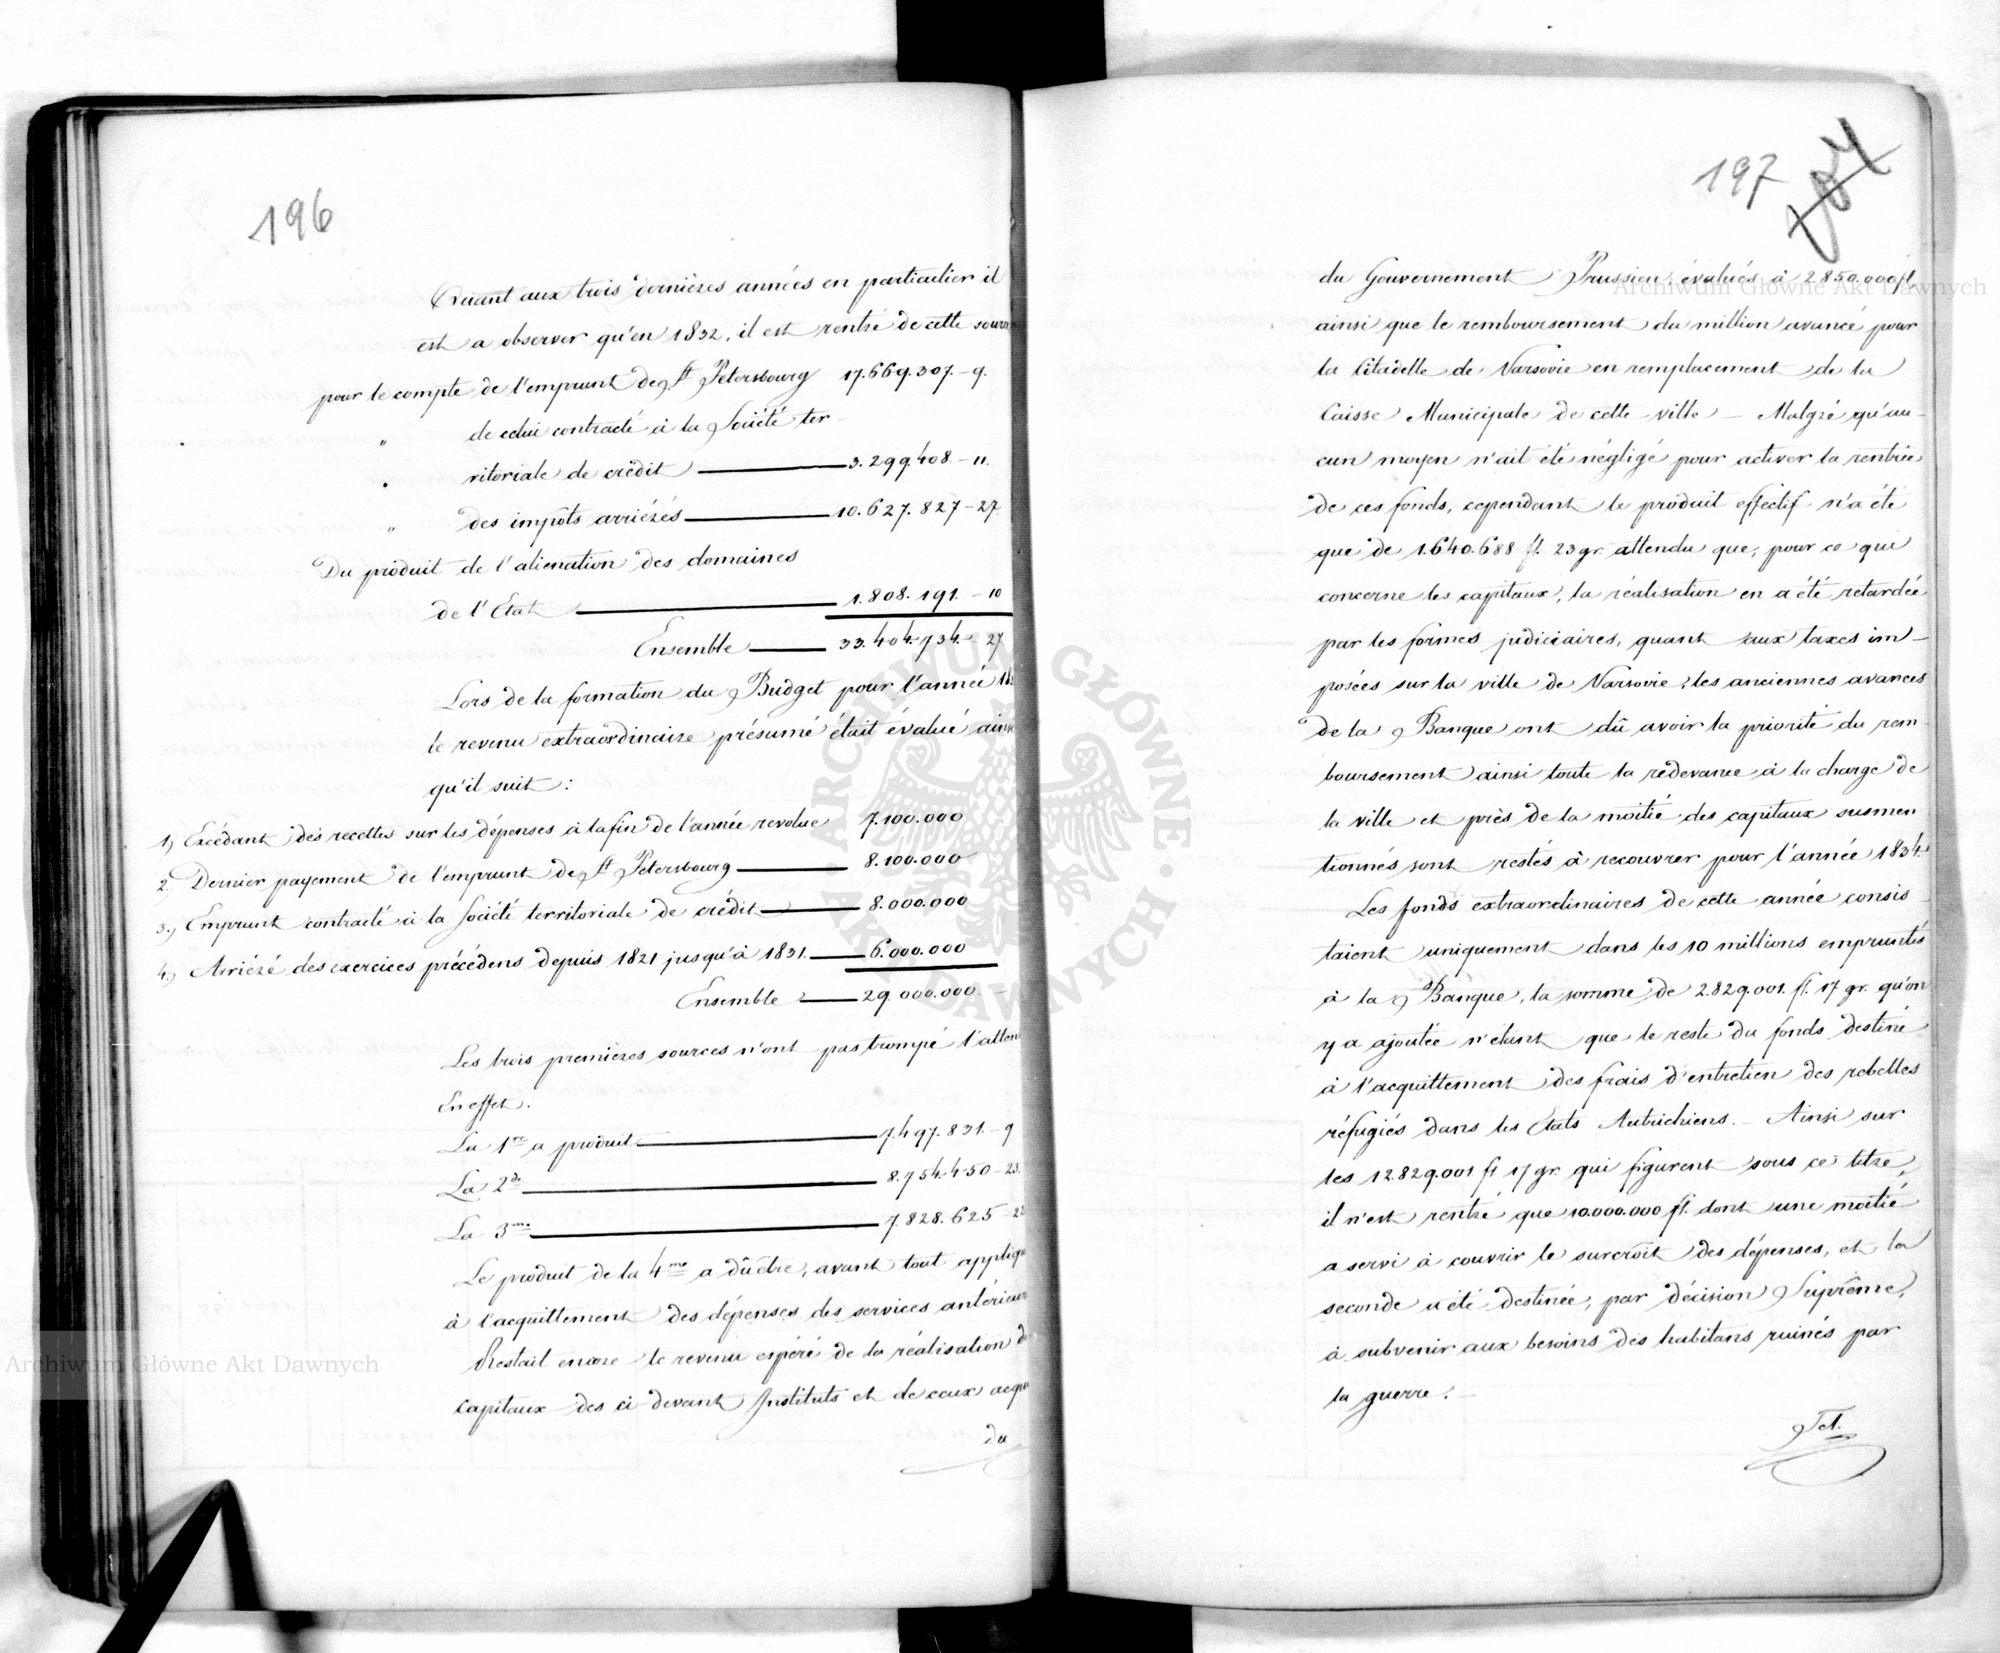 196
Quant aux trois dernières années en particulier il
est a observer qu'en 1832, il est rentré de cette sour
pour le compte de l'emprunt de St Petersbourg 17.669.307.-9.
" de celui contracté à la Société ter-
ritoriale de crédit 3.299.408.-11.
" des impôts arriérés 10.627.827-27
Du produit de l'alienation des domaines
de l'Etat 1.808.191.-10
Ensemble 33.404.734.-27
Lors de la formation du Budget pour l'année 18
le revenu extraordinaire présumé était évalué ainsi
qu'il suit:
1) Excédant des recettes sur les dépenses à la fin de l'année revolue 7.100.000
2. Dernier payement de l'emprunt de St Petersbourg 8.100.000
3.) Emprunt contracté à la Société territoriale de crédit 8.000.000
4) Arriéré des exercices précédens depuis 1821 jusqu'à 1831. 6.000.000
Ensemble 29.000.000.-
Les trois premières sources n'ont pas trompé l'atten
En effet.
La 1re a produit 7.497.831.-9
La 2de 8.754.450-23.
La 3me 7.828.625-2
Le produit de la 4me a dû être, avant tout appliqu
à l'acquittement des dépenses des services antérieur
Restait encore le revenu espéré de la réalisation d
capitaux des ci-devant Instituts et de ceux acqu
du
197
du Gouvernement Prussien, évalués à 2.850.000 fl.
ainsi que le remboursement du million avancé pour
la Citadelle de Varsovie en remplacement de la
Caisse Municipale de cette ville - Malgré qu'au-
cun moyen n'ait été négligé pour activer la rentrée
de ces fonds, cependant le produit effectif n'a été
que de 1.640.688 fl. 23 gr. attendu que, pour ce qui
concerne les capitaux, la réalisation en a été retardée
par les formes judiciaires, quant aux taxes im-
posées sur la ville de Varsovie, les anciennes avances
de la Banque ont dû avoir la priorité du rem-
boursement ainsi toute la rédevance à la charge de
la ville et près de la moitié des capitaux susmen
tionnés sont restés à recouvrer pour l'année 1834.
Les fonds extraordinaires de cette année consis
taient uniquement dans les 10 millions empruntés
à la Banque, la somme de 2.829.001. fl. 17 gr. qu'on
y a ajoutée n'étant que le reste du fonds destiné
à l'acquittement des frais d'entretien des rebelles
réfugiés dans les États Autrichiens. - Ainsi sur
les 12.829.001 fl 17 gr. qui figurent sous ce titre,
il n'est rentré que 10.000.000 fl. dont une moitié
a servi à couvrir le surcroit des dépenses, et la
seconde a été destinée, par décision Suprême,
à subvenir aux besoins des habitans ruinés par
la guerre.
Tel.
Archiwum Główne Akt Dawnych
Archiwum Główne Akt Dawnych
ARCHIWUM GŁÓWNE · AKT DAWNYCH ·